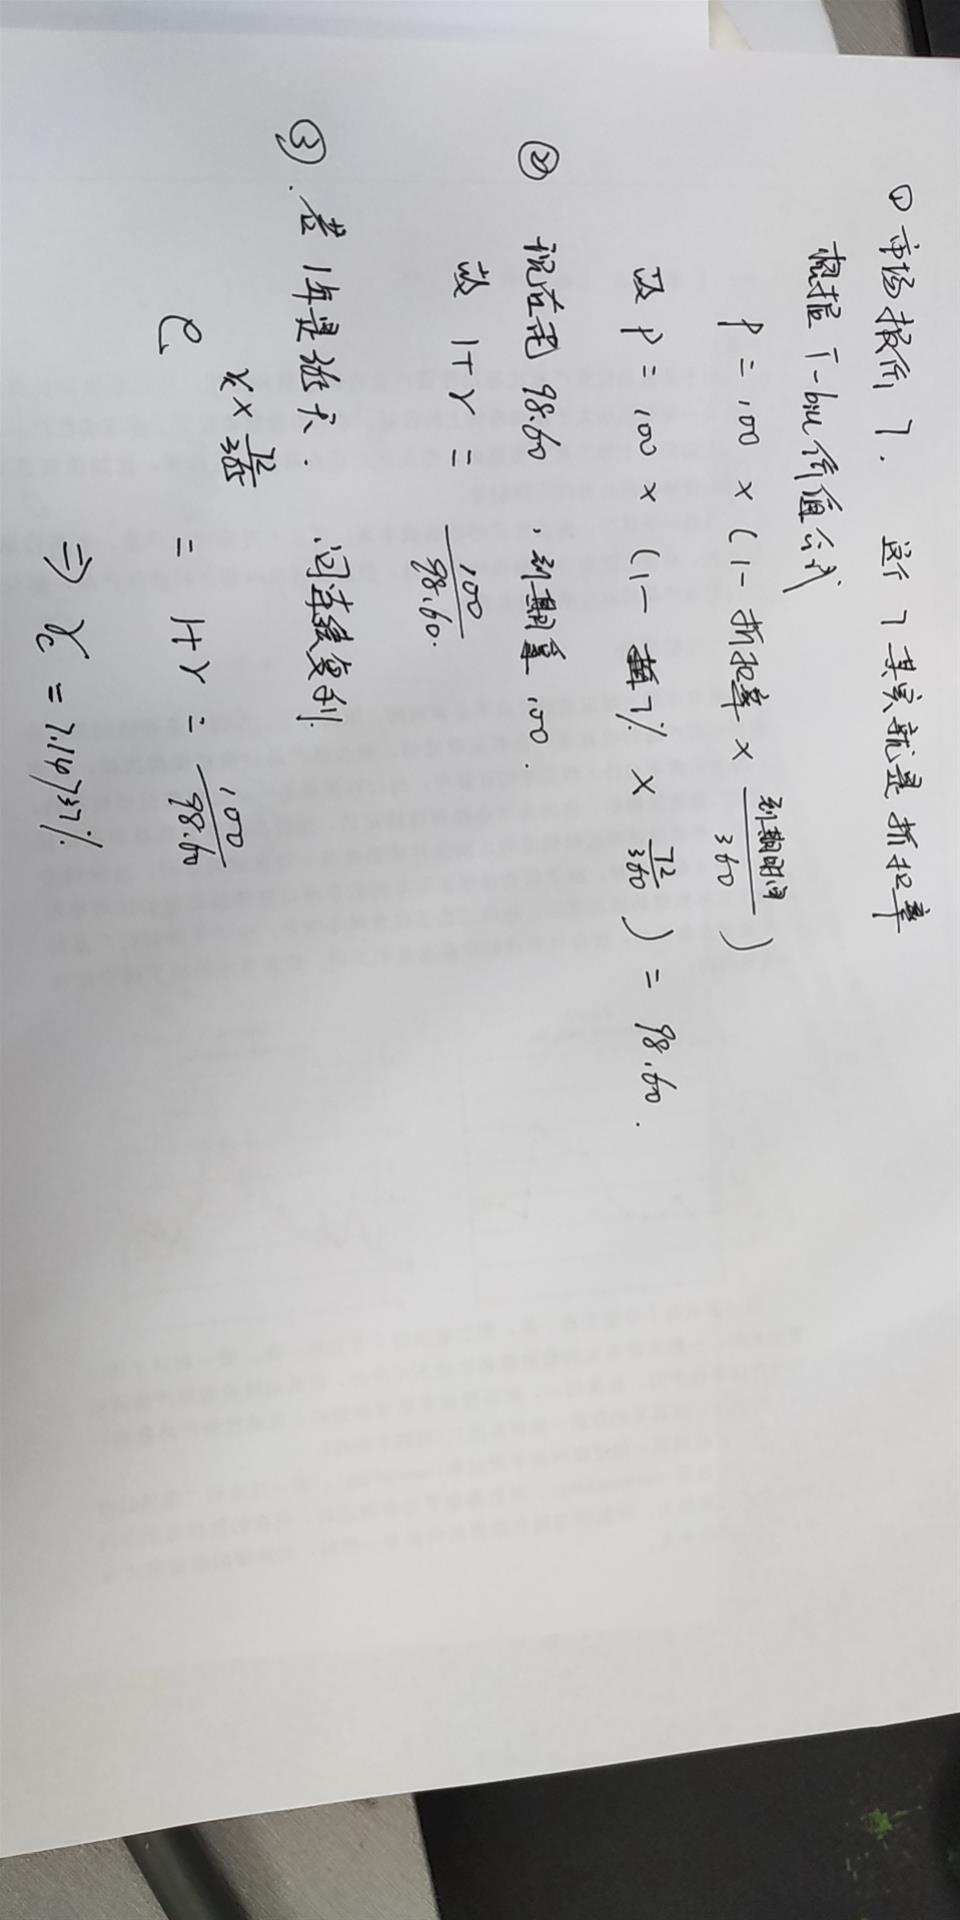 ① 市场报价 7. 这个 7 其实就是折扣率
根据 T-bill 价值公式
P = 100 × (1 - 折扣率 × 到期时间/360)
故 P = 100 × (1 - 7% × 72/360) = 98.60.
② 现在花 98.60, 到期拿 100.
故 1+r = 100/98.60.
③. 若 1年是 365天. 问连续复利.
e^(r_c × 72/365) = 1+r = 100/98.60
⇒ r_c = 7.14737%